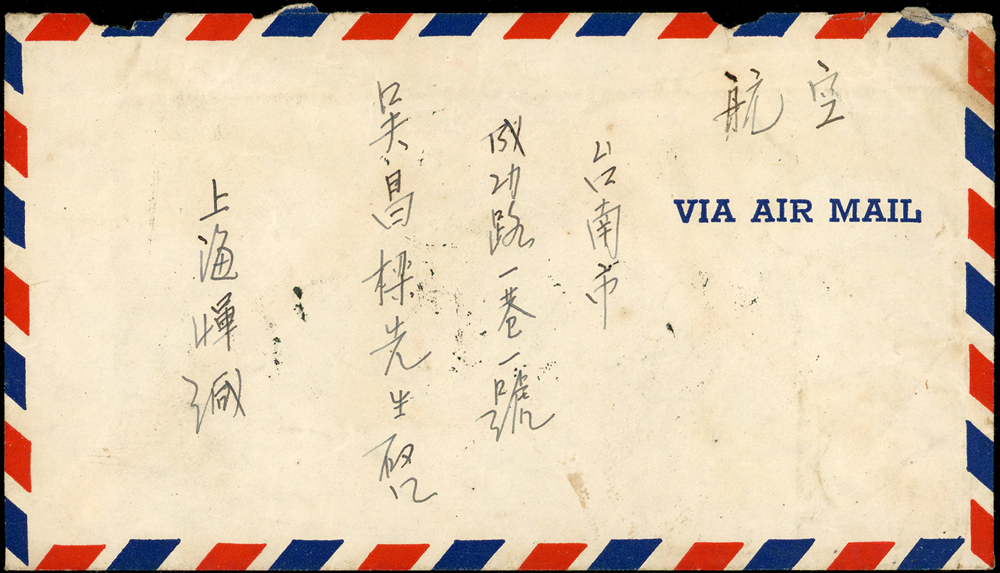 航空
VIA AIR MAIL
台南市
成功路一巷一號
吳昌樑先生啓
上海惲緘